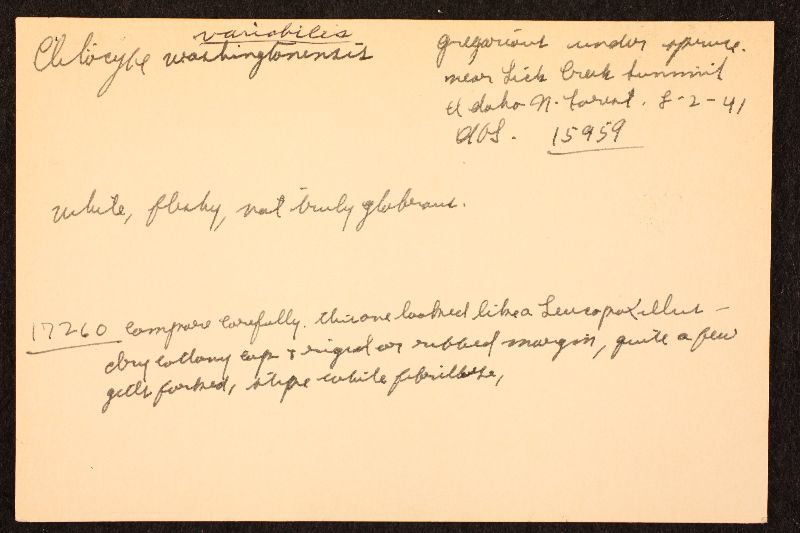 variabiles
Clitocybe washingtonensis
gregarious under spruce.
near Lick Creek Summit
Idaho N. Forest. 8-2-41
AHS. 15959
white, fleshy, not truly glabrous.
17260 compare carefully. this one looked like a Leucopaxillus -
dry cottony cap & ridged or ribbed margin, quite a few
gills forked, stipe white fibrillose,